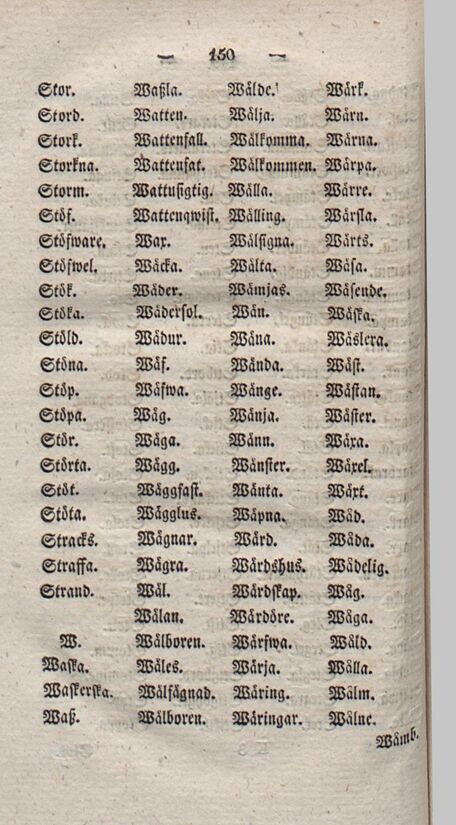 — 150 —
Stor.
Stord.
Stork.
Storkna.
Storm.
Stöf.
Stöfware.
Stöfwel.
Stök.
Stöka.
Stöld.
Stöna.
Stöp.
Stöpa.
Stör.
Störta.
Stöt.
Stöta.
Stracks.
Straffa.
Strand.
W.
Waska.
Waskerska.
Waß.
Waßla.
Watten.
Wattenfall.
Wattenfat.
Wattusigtig.
Wattenqwist.
Wax.
Wäcka.
Wäder.
Wädersol.
Wädur.
Wäf.
Wäfwa.
Wäg.
Wäga.
Wägg.
Wäggfast.
Wägglus.
Wägnar.
Wägra.
Wäl.
Wälan.
Wälboren.
Wäles.
Wälfägnad.
Wälboren.
Wälde.
Wälja.
Wälkomma.
Wälkommen.
Wälla.
Wälling.
Wälsigna.
Wälta.
Wämjas.
Wän.
Wäna.
Wända.
Wänge.
Wänja.
Wänn.
Wänster.
Wänta.
Wäpna.
Wärd.
Wärdshus.
Wärdskap.
Wärdöre.
Wärfwa.
Wärja.
Wäring.
Wäringar.
Wärk.
Wärn.
Wärna.
Wärpa.
Wärre.
Wärsla.
Wärts.
Wäsa.
Wäsende.
Wäska.
Wäslera.
Wäst.
Wästan.
Wäster.
Wäxa.
Wäxel.
Wäxt.
Wåd.
Wåda.
Wådelig.
Wåg.
Wåga.
Wåld.
Wålla.
Wålm.
Wålne.
Wåmb.